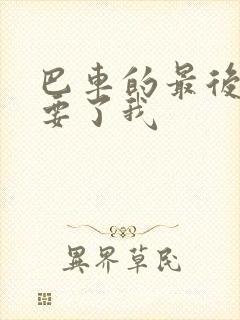 巴車的最後
要了我
異界草民